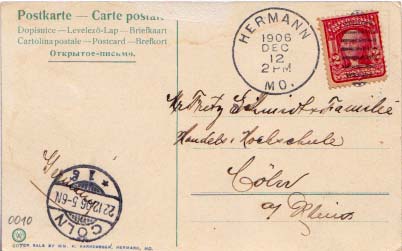 Postkarte — Carte postale
Dopisnice — Levelező-Lap — Briefkaart
Cartolina postale — Postcard — Brefkort
Открытое-письмо.
HERMANN
1906
DEC
12
2 PM
MO.
Fritz Schmidt & Familie
Handels-Hochschule
Cöln
a/ Rhein
CÖLN
22.12.06.5-6N
* 1 g
0010
W